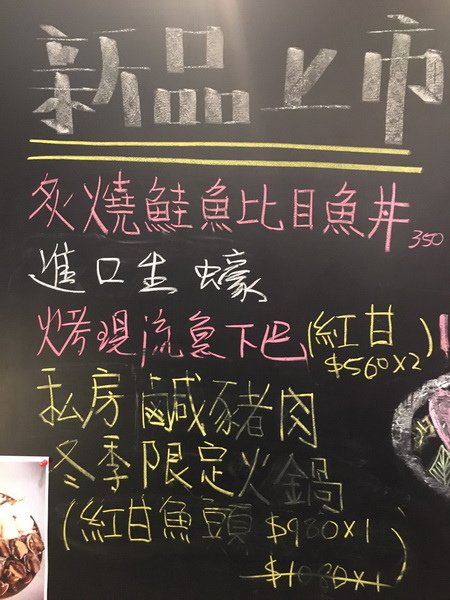 新品上市
炙燒鮭魚比目魚丼 350
進口生蠔
烤現流魚下巴(紅甘)
$560x2
私房鹹豬肉
冬季限定火鍋
(紅甘魚頭 $980x1)
$1080x1